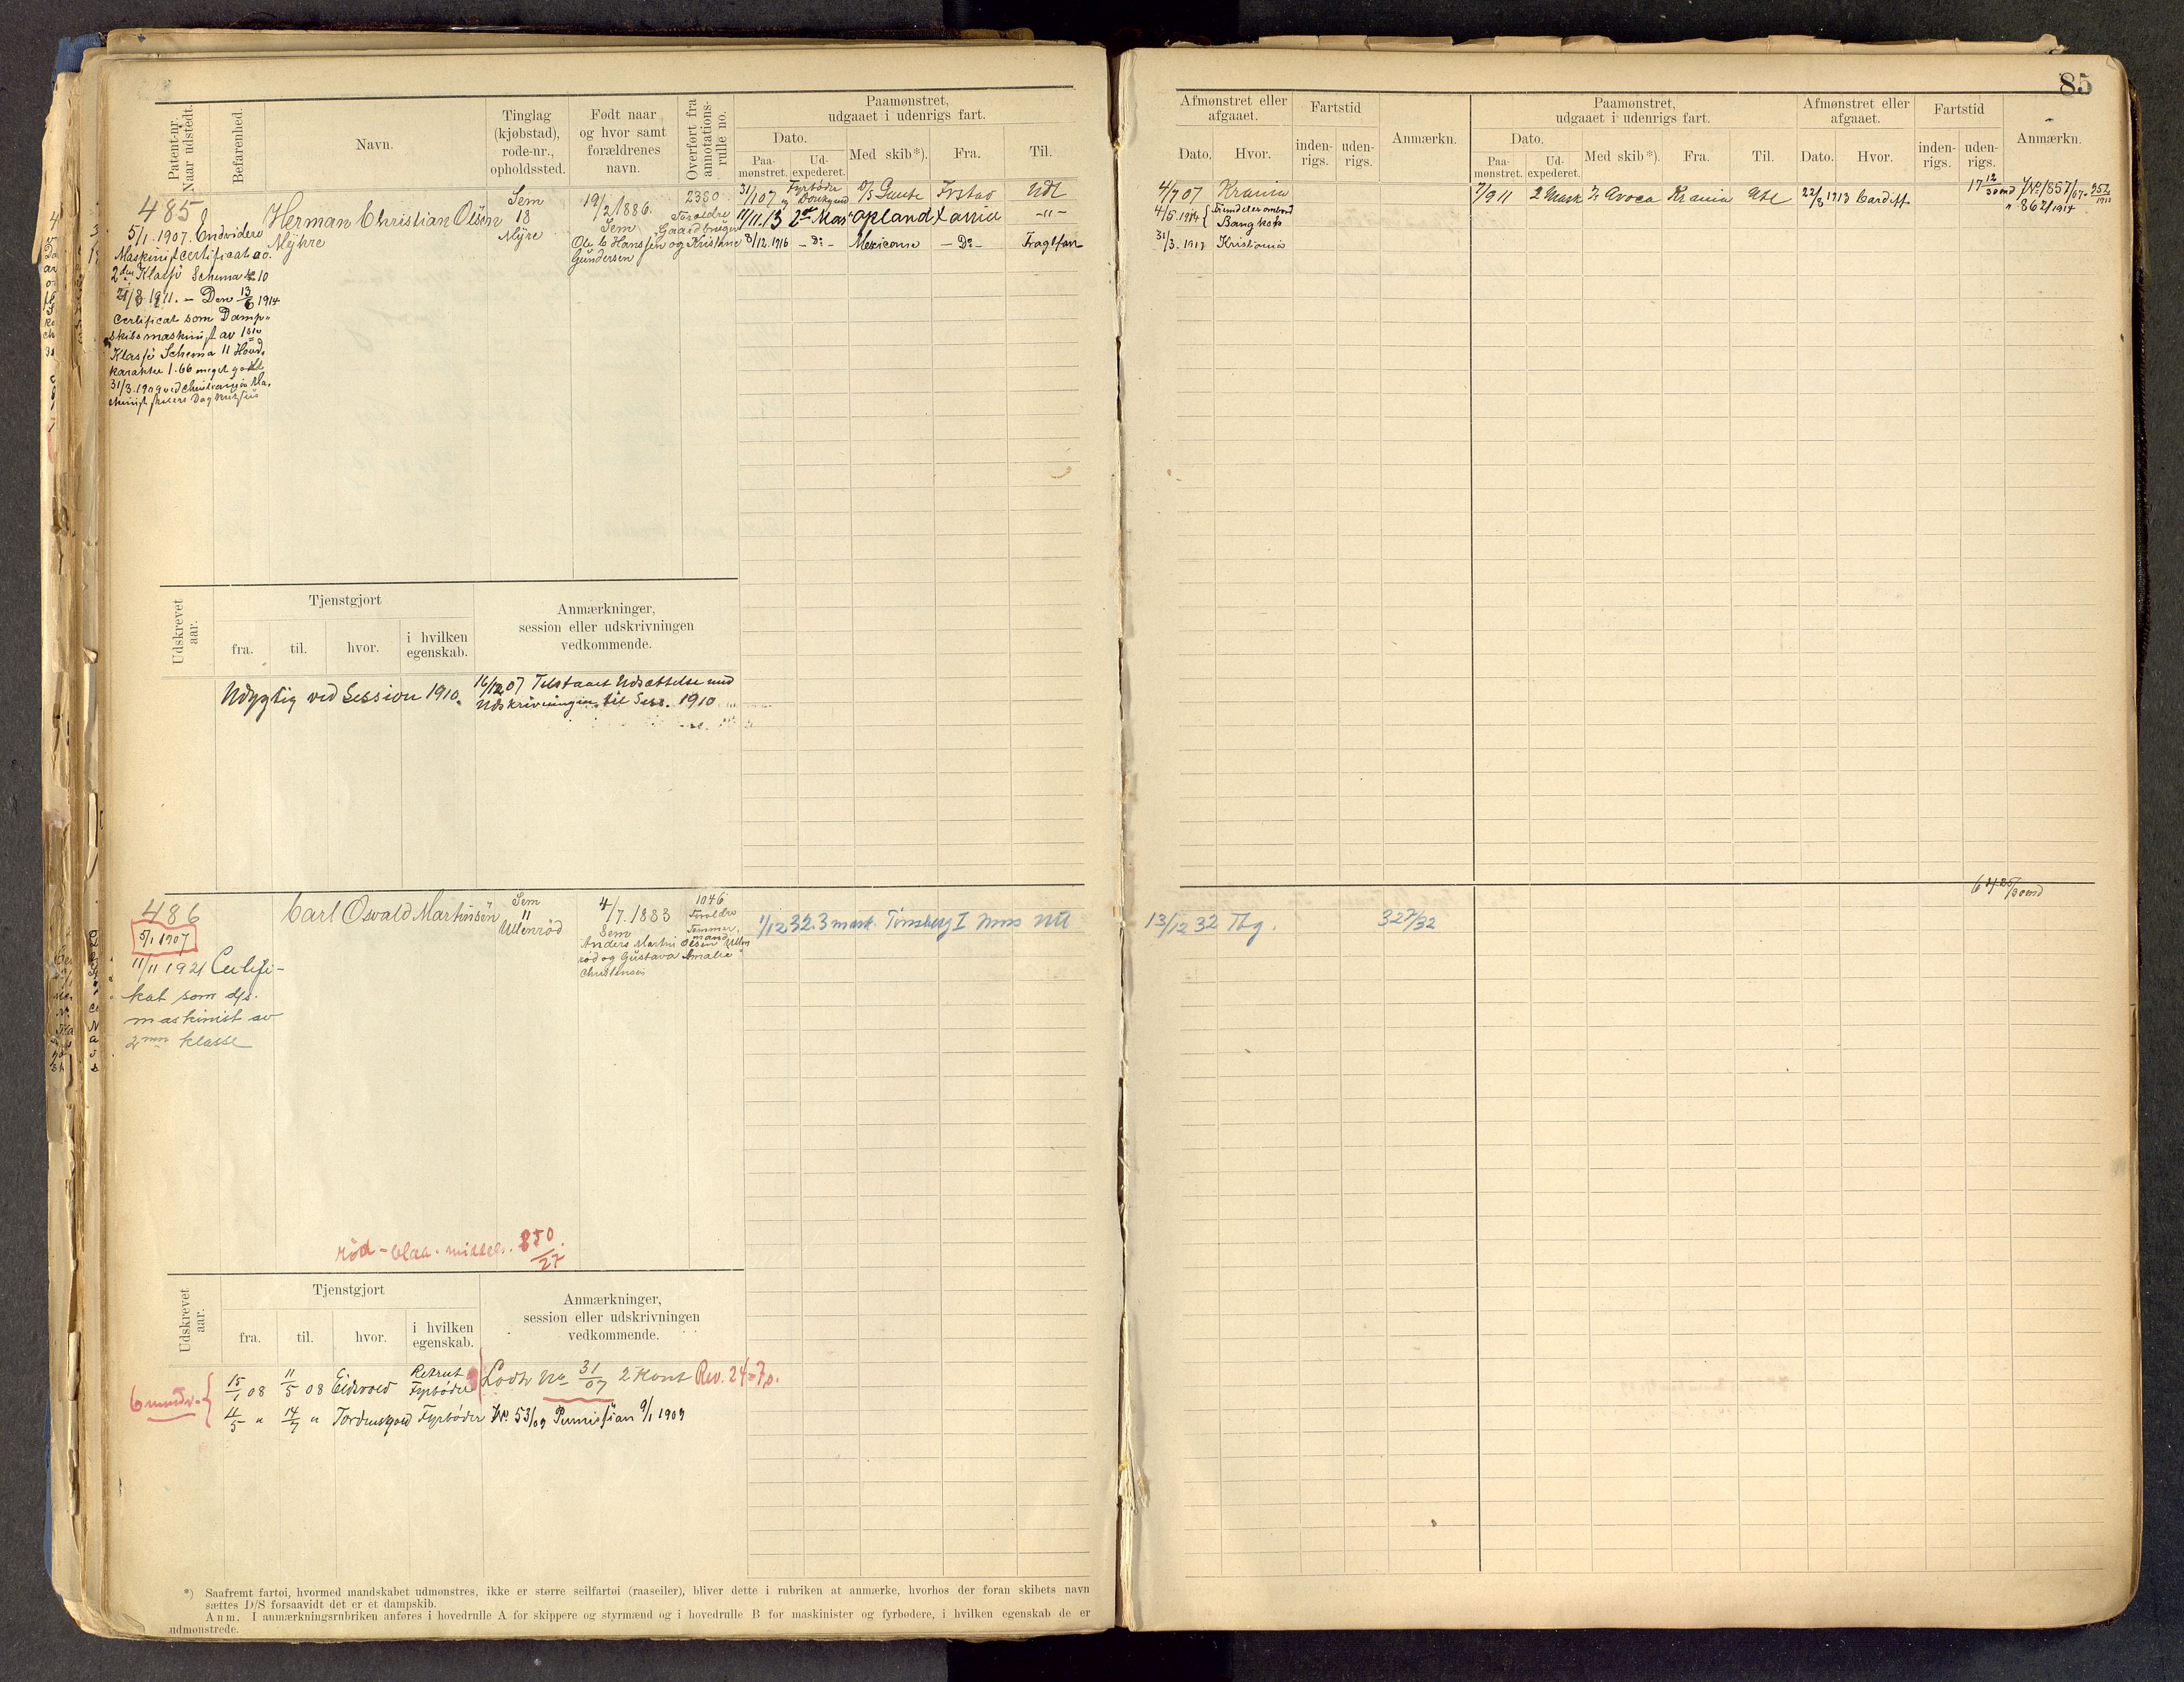 85
Patent-nr. Naar udstedt.
Befarenhed.
Navn.
Tinglag (kjøbstad), rode-nr., opholdssted.
Født naar og hvor samt forældrenes navn.
Overført fra annotations-rulle no.
Paamønstret, udgaaet i udenrigs fart.
Dato.
Paa-mønstret.
Ud-expederet.
Med skib*).
Fra.
Til.
Afmønstret eller afgaaet.
Dato.
Hvor.
Fartstid
inden-rigs.
uden-rigs.
Anmærkn.
Paamønstret, udgaaet i udenrigs fart.
Dato.
Paa-mønstret.
Ud-expederet.
Med skib*).
Fra.
Til.
Afmønstret eller afgaaet.
Dato.
Hvor.
Fartstid
inden-rigs.
uden-rigs.
Anmærkn.
485
5/1 1907. Endvidere
Maskinistcertificat ao.
2den Klasse Schema No 10
21/8 1911. – Den 13/6 1914
Certificat som Damp-
skibsmaskinist av 1ste
Klasse Schema 11 Hoved-
karakter 1.66 meget godt
31/3.1909 ved Christiania Ma-
Herman Christian Olsen
Myhre
Sem
18
Myre
19/2 1886.
Sem
Forældre
Gaardbruger
Ole C Hanssen og Kristine
Gundersen
2380
31/1 07 Fyrbøder og Donkymd D/S Gaute Frstad Udl
11/11.13 2den Mas. Opland Larvia -"-
8/12.1916 – Do – Mexicano – Do – Fragtfart
4/7 07 Krania
4/5.1914 Fremdeles ombord
Bangkok
31/3.1917 Kristiania
7/9 11 2 Mask Avoca Krania Utl 22/8 1913 Cardiff 17 12/30 md
" 862/1914
Udskrevet aar.
Tjenstgjort
fra.
til.
hvor.
i hvilken egenskab.
Anmærkninger, session eller udskrivningen vedkommende.
Udygtig ved Session 1910.
16/12 07 Tilstaaet Udsættelse med
Udskrivningen til Sess. 1910
486
5/1 1907
11/11 1921 Certifi-
kat som d/s.
maskinist av
2nen klasse
Carl Osvald Martinsen
Sem
11
Ullenrød
4/7.1883
Sem
1046
Forældre
Tømmer-
mand
Anders Martin Olsen Ullen
rød og Gustava Amalie
Christensen
1/12 32. 3 mask. Tønsberg I Mms Utl
13/12 32 Tbg. 327/32
6 4 25/30 md
rød – blaa. middels. 850/27
Udskrevet aar.
Tjenstgjort
fra.
til.
hvor.
i hvilken egenskab.
Anmærkninger, session eller udskrivningen vedkommende.
6 mndr.
15/1 08 11/5 08 Eidsvold Rekrut Fyrbøder
Lodtr No 31/07 2 Kont Rev. 24 = 7,0.
11/5 " 14/7 " Tordenskjold Fyrbøder No. 53/09 Permission 9/1 1909
*) Saafremt fartøi, hvormed mandskabet udmønstres, ikke er større seilfartøi (raaseiler), bliver dette i rubriken at anmærke, hvorhos der foran skibets navn
sættes D/S forsaavidt det er et dampskib.
Anm. I anmærkningsrubriken anføres i hovedrulle A for skippere og styrmænd og i hovedrulle B for maskinister og fyrbødere, i hvilken egenskab de er
udmønstrede.